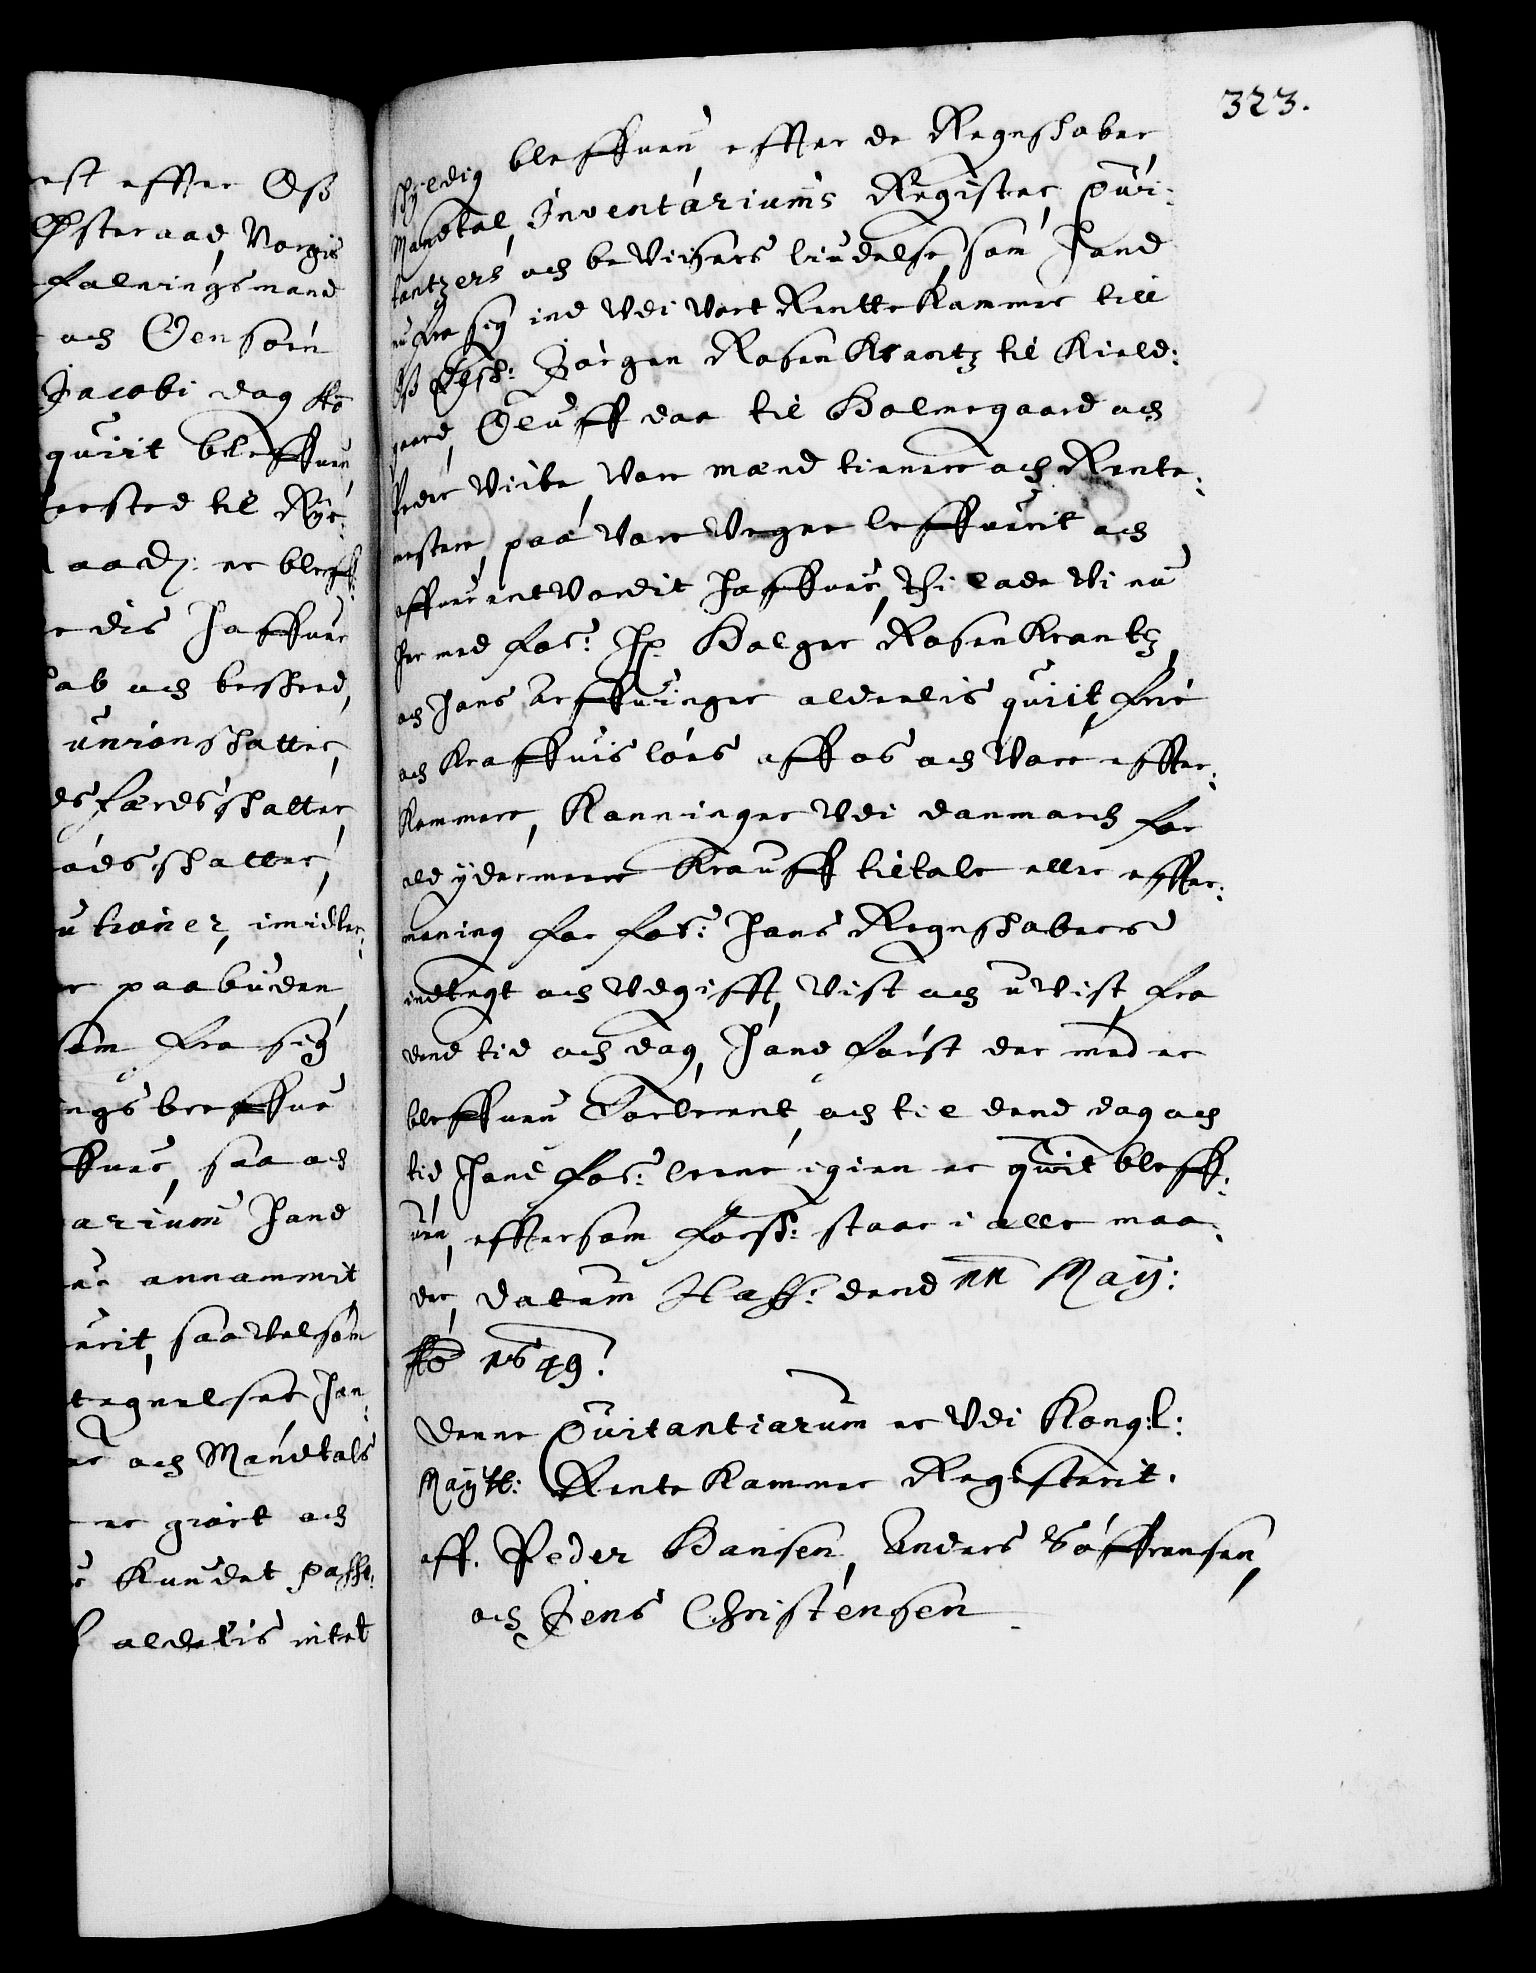 est effter Oß
Østeraad, Norgis
falningsmand
och Gensøin
Jacobi dag Aō
quiit bleffuen
ersted til Rye:
aadz: er bleff:
dis haffuer
ab och beskeed,
unionskatter,
ds færdsskatter
ods skatter,
utioner, imidler:
er paabuden,
som fra sig
ngs breffue
ffuer, saa och
arium hand
annammit
urit, saavelsom
tegnelser han
er och Mandtals
er giort och
Kundet passe:
aldelis intet
323.
schyldig bleffuen effter de Regnschaber
Mandtal, Inventariums Register, Qui:
tantzers och beviissers liudelse, som hand
nu fra sig ind udi vort Rentte Kammer till
Oß Elsk: Jørgen Rosenkrantz til Kield:
gaard, Oluff daa til Holmegaard och
Peder Viibe, vore mænd tienere och Rente:
mestere, paa vore vegne leffuerit och
offuerantvordit haffuer, Thi lade vi nu
her med for: Hr Holger Rosenkrantz
och hans Arffuinger aldeelis quiit, frie
och kraffuis løes aff os och vore effter:
kommere, Konninger udi danmarck for
ald ydermeere krauff tiltale eller effter:
maning for for: hans Regnschabers
indtegt och udgifft, vist och uvist, fra
dend tid och dag, hand først der med er
bleffuen forleent, och til dend dag och
tid hand for: leene igien er qwit bleff:
uen, efftersom forsk: staar i alle maa:
der, Datum Haff: dend 11 Maij:
Aō 1649.
Denne Quitantiarum er udi Kong:l:
Maytt: Rente Kammer Registerit.
aff. Peder Hansen, Anders Søffrensen,
och Jens Christensen